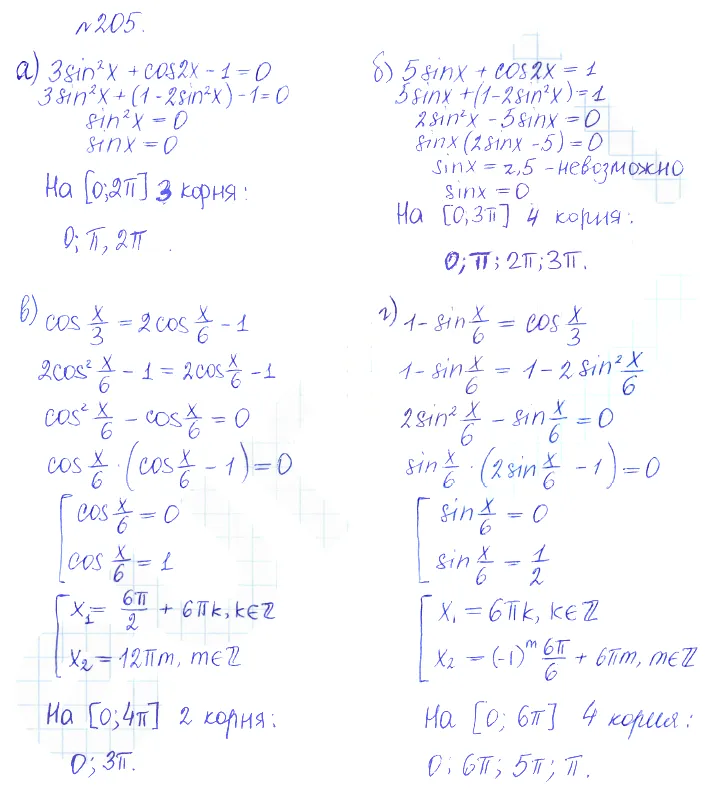 №205.
а) 3sin²x + cos2x - 1 = 0
3sin²x + (1 - 2sin²x) - 1 = 0
sin²x = 0
sinx = 0
На [0; 2π] 3 корня:
0; π, 2π .
б) 5sinx + cos2x = 1
5sinx + (1 - 2sin²x) = 1
2sin²x - 5sinx = 0
sinx(2sinx - 5) = 0
sinx = 2,5 - невозможно
sinx = 0
На [0, 3π] 4 корня:
0; π; 2π; 3π.
в) cos x/3 = 2cos x/6 - 1
2cos² x/6 - 1 = 2cos x/6 - 1
cos² x/6 - cos x/6 = 0
cos x/6 · (cos x/6 - 1) = 0
[ cos x/6 = 0
cos x/6 = 1
[ x₁ = 6π/2 + 6πk, k∈ℤ
x₂ = 12πm, m∈ℤ
На [0; 4π] 2 корня:
0; 3π.
г) 1 - sin x/6 = cos x/3
1 - sin x/6 = 1 - 2sin² x/6
2sin² x/6 - sin x/6 = 0
sin x/6 · (2sin x/6 - 1) = 0
[ sin x/6 = 0
sin x/6 = 1/2
[ x₁ = 6πk, k∈ℤ
x₂ = (-1)ᵐ 6π/6 + 6πm, m∈ℤ
На [0; 6π] 4 корня:
0; 6π; 5π; π.